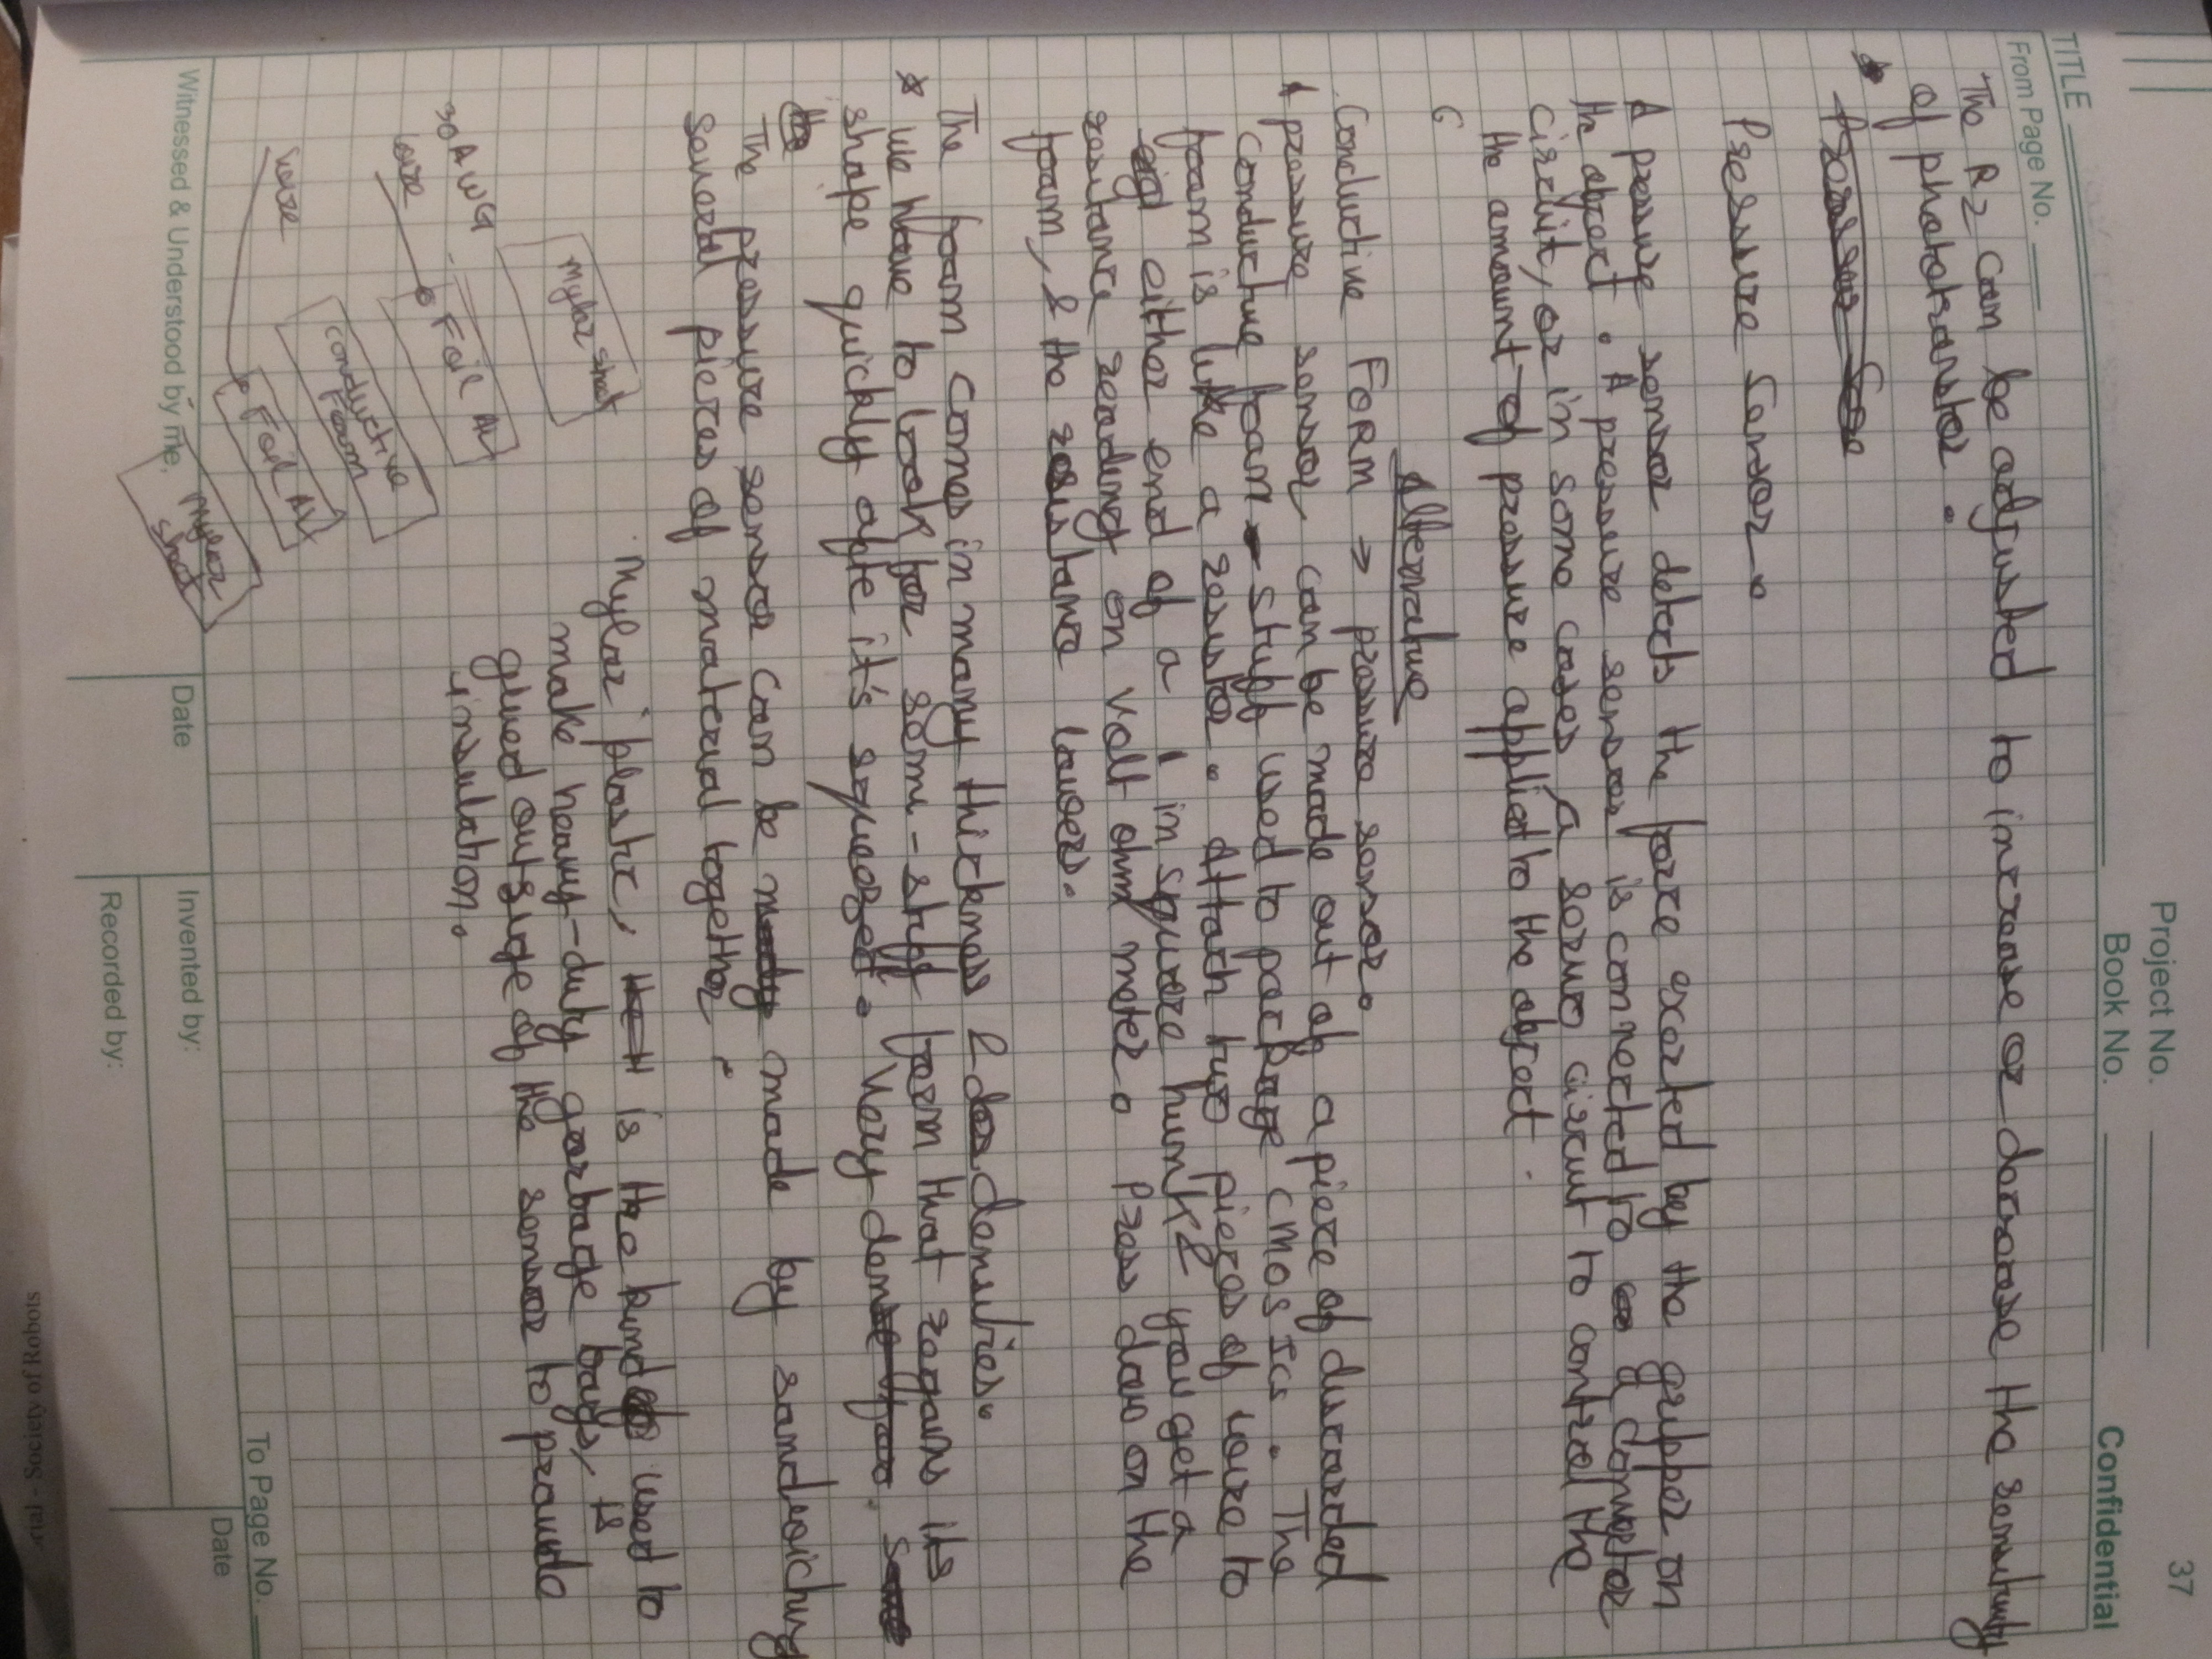 37
Project No.
Book No.
Confidential
TITLE
From Page No.
The R2 can be adjusted to increase or decrease the sensitivity
of phototransistor.
Pressure Sensor.
A pressure sensor detects the force exerted by the gripper on
the object. A pressure sensor is connected to a converter
circuit, or in some cases a servo circuit to control the
the amount of pressure applied to the object.
Alternative
Conductive FORM → pressure sensor.
A pressure sensor can be made out of a piece of discarded
conductive foam - stuff used to package CMOS ICs. The
foam is like a resistor. Attach two pieces of wire to
either end of a 1 in square hunk & you get a
resistance reading on volt ohm meter. Press down on the
foam, & the resistance lowers.
The foam comes in many thickness & densities.
* We have to look for semi-stiff foam that regains its
shape quickly after it's squeezed. Very dense
The pressure sensor can be made by sandwiching
several pieces of material together.
Mylar plastic, is the kind used to
make heavy-duty garbage bags, is
glued outside of the sensor to provide
insulation.
Mylar sheet
Foil AL
30 AWG
wire
conductive
Foam
Foil AL
wire
Mylar
sheet
To Page No.
Witnessed & Understood by me,
Date
Invented by:
Date
Recorded by:
rial - Society of Robots